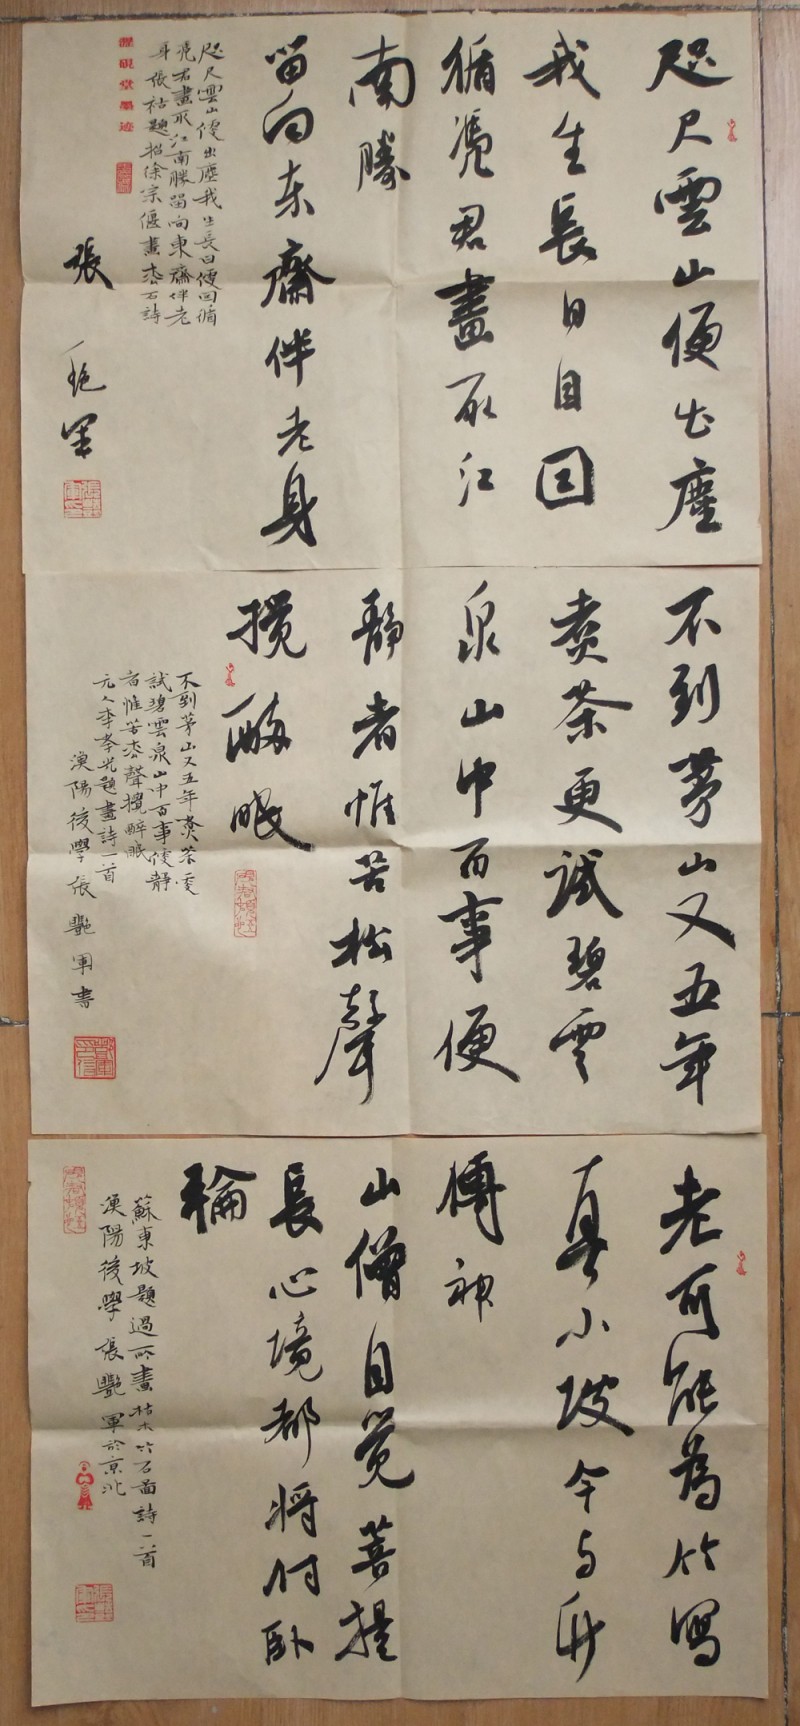 咫尺雲山便出塵
我生長日自因
循憑君畫取江
南勝
留向東齋伴老身
咫尺雲山便出塵我生長日便因循
憑君畫取江南勝留向東齋伴老
身張祜題招徐宗偃畫松石詩
濯硯堂墨迹
張艷軍
不到茅山又五年
煮茶更試碧雲
泉山中百事便
靜者惟苦松聲
攪醉眠
不到茅山又五年煮茶更
試碧雲泉山中百事便靜
者惟苦松聲攪醉眠
元人李孝光題畫詩一首
漁陽後學張艷軍書
老可能為竹寫
真小坡今與竹
傳神
山僧自覺菩提
長心境都將付臥
輪
蘇東坡題過所畫枯木竹石圖詩一首
漁陽後學張艷軍於京北